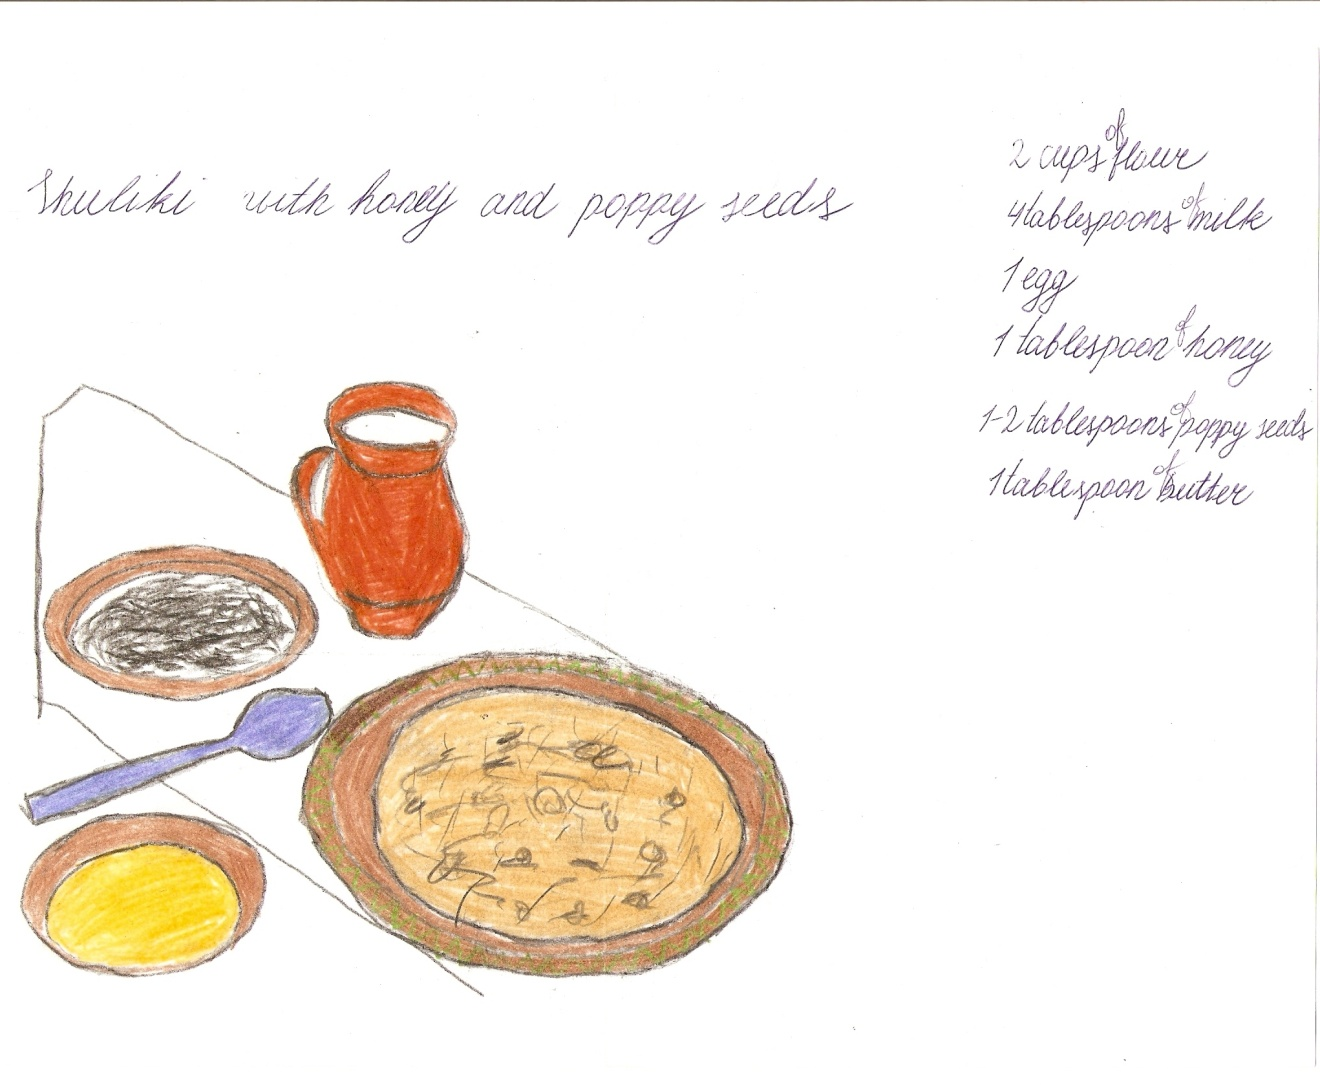 Shuliki with honey and poppy seeds
2 cups of flour
4 tablespoons of milk
1 egg
1 tablespoon of honey
1-2 tablespoons of poppy seeds
1 tablespoon of butter